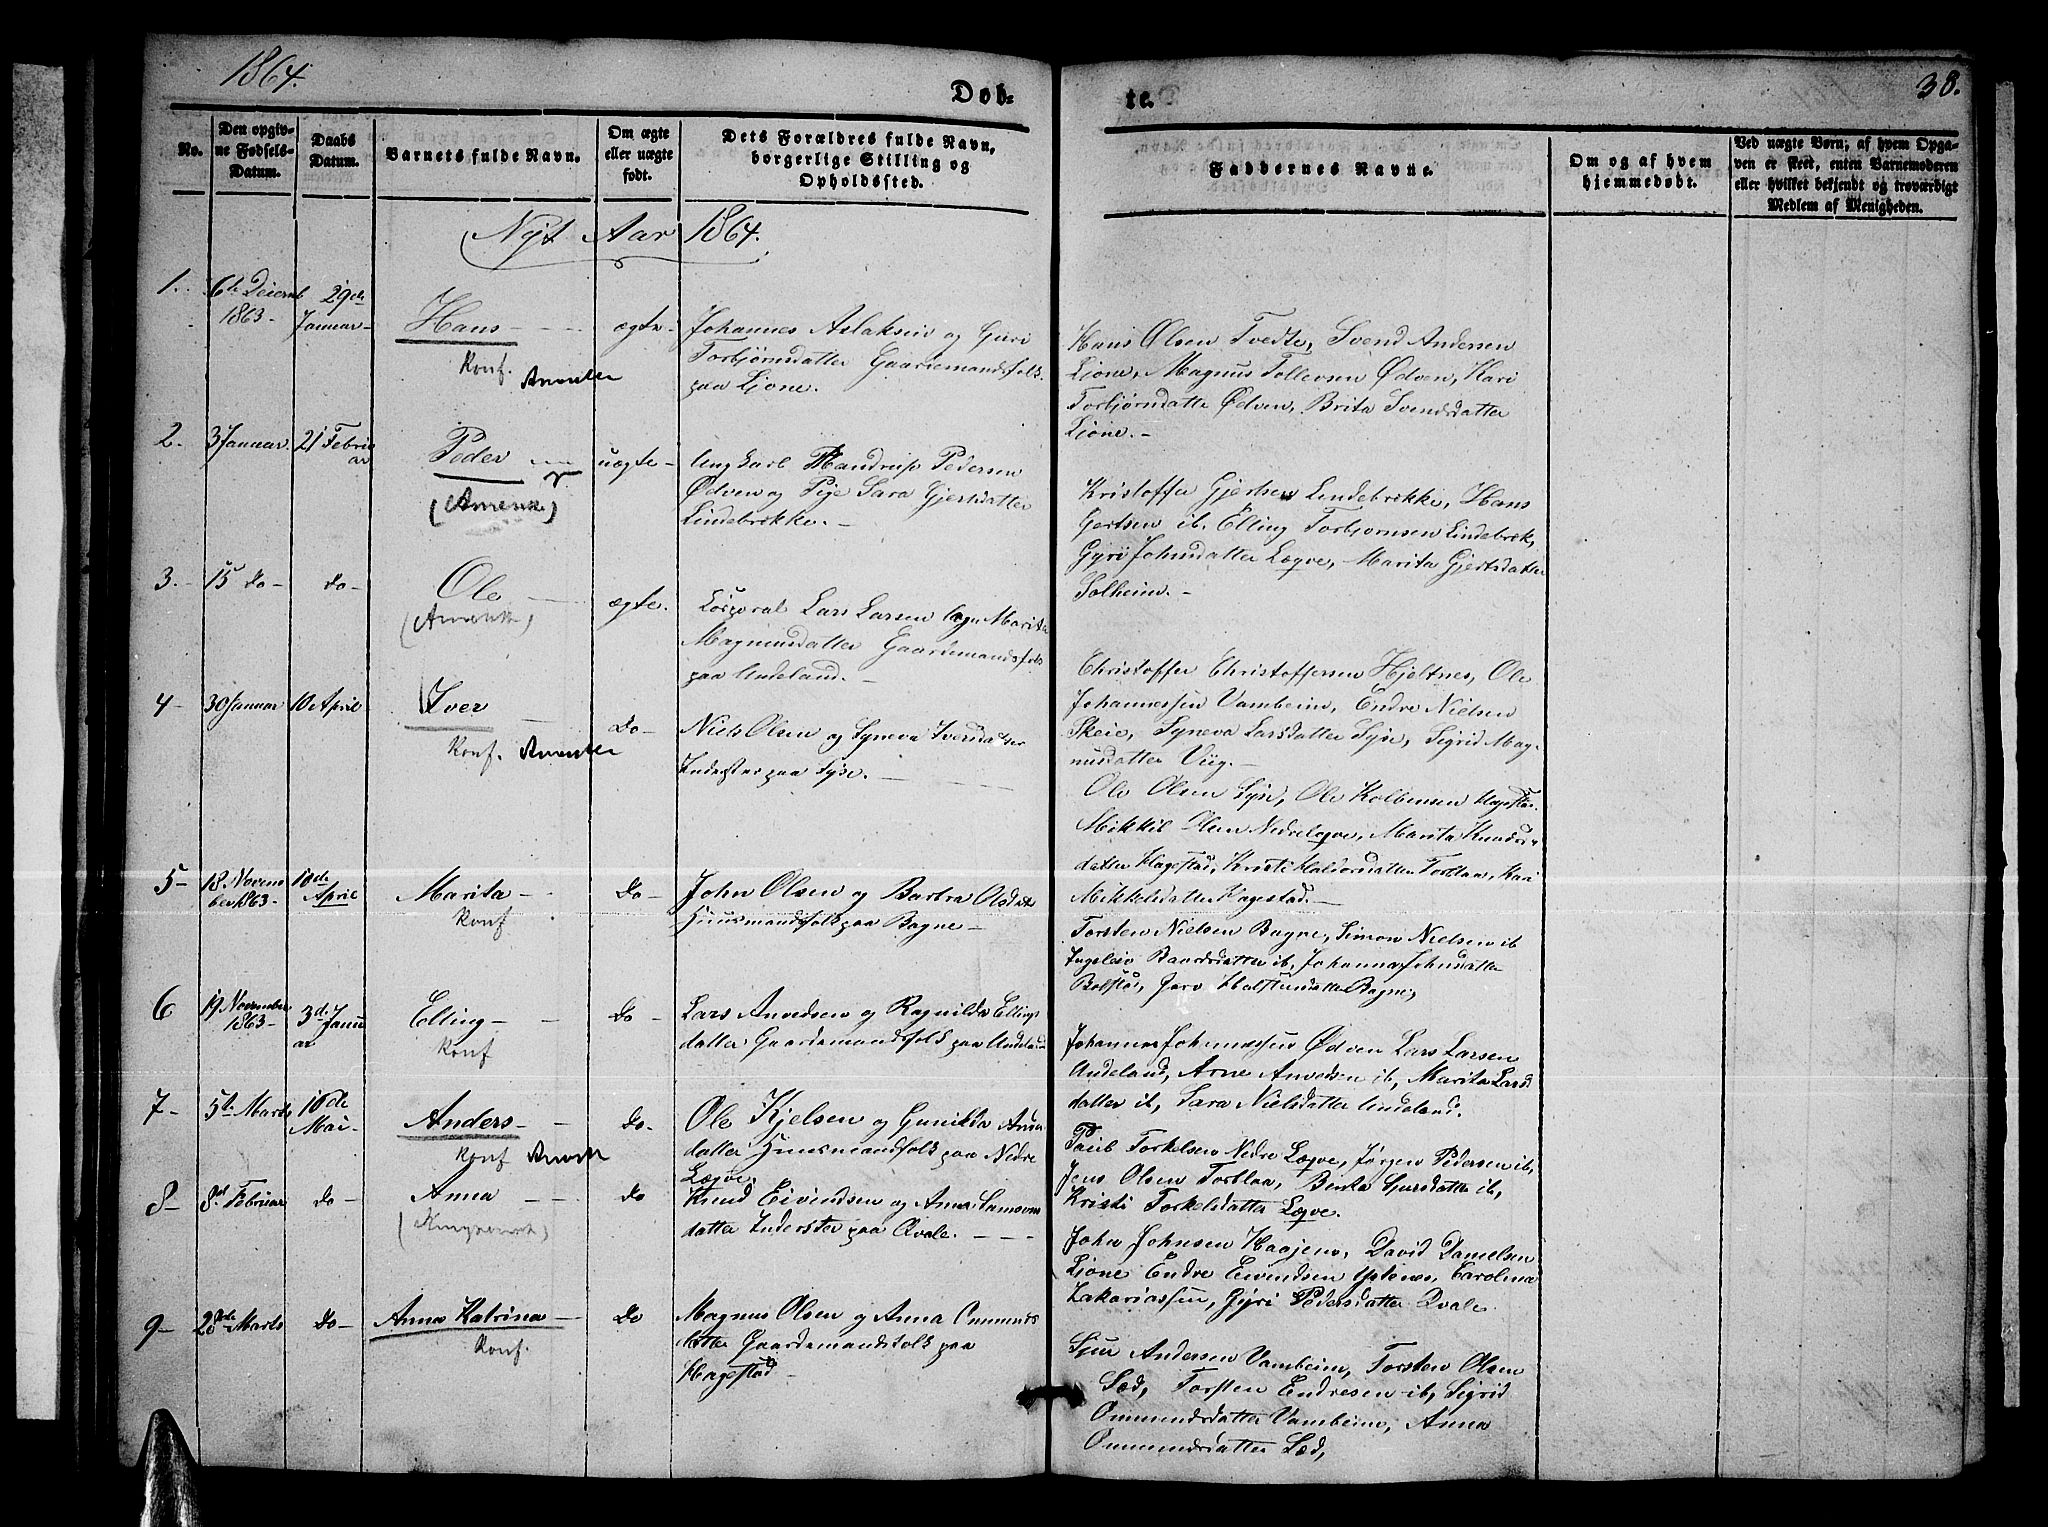 1864.
Døb-
te.
38.
No.
Den opgiv-
ne Fødsels-
Datum.
Daabs
Datum.
Barnets fulde Navn.
Om ægte
eller uægte
født.
Dets Forældres fulde Navn,
borgerlige Stilling og
Opholdssted.
Faddernes Navne.
Om og af hvem
hjemmedøbt.
Ved uægte Børn; af hvem Opga-
ven er skeet, enten Barnemoderen
eller hvilket bekjendt og troværdigt
Medlem af Menigheden.
Nyt Aar 1864.
1.
6te
1863-
29de
Januar-
Hans
Konf.
ægte-
Johannes Aslaksen og Guri
Torbjørnsdatter
paa Ljone.
Hans Olsen Tvedte, Svend Andersen
Ljone, Magnus Tollevsen Ødven, Kari
Torbjørnsdatte Ødven, Brita Svendsdatter
Ljone.-
2.
3 Januar.
21 Febru
ar
Peder
uægte-
Ungkarl Mandrup Pedersen
Ødven og Pige Sara Gjertsdatter
Lindebrekke.-
Kristoffer Gjertsen Lindebrekke, Hans
Gjertsen ib, Elling Torbjørnsen Lindebrek,
Gyri Johnsdatter Lægve, Marita Gjertsdatter
Solheim.-
3.-
15 do-
do-
Ole
ægte.
Korporal Lars Larsen og Marita
Magnusdatter Gaardemandsfolk
paa Undeland.-
Christoffer Christoffersen Hjeltnes, Ole
Johannessen Vambeim, Endre Nielsen
Skeie, Syneva Larsdatter Syse, Sigrid Mag-
nusdatter Viig.-
4-
30 Januar
10 April
Iver
Konf.
do-
Niels Olsen og Syneva Iversdatter
Inderster paa Syse.-
Ole Olsen Syse, Ole Kolbensen Hagestad
Mikkel Olsen Nedrelegve, Marita Knuds-
datter Hagestad, Kristi Haldorsdatter Torblaa, Kari
Mikkelsdatter Hagestad.-
5-
18 Novem
ber 1863-
10de
April
Marita
Konf
do-
John Olsen og Barbra Olsdatter
Huusmandsfolk paa Bagne-
Torsten Nielsen Bagne, Simon Nielsen ib
Ingeleiv Baardsdatter ib, Johanna Johnsdatter
Bolstad, Bagne,
6
19 November
1863-
3d. Janu
ar
Elling-
Konf
do-
Lars Anvedsen og Ragnilda Ellings
datter Gaardemandsfolk paa Undeland
Johannes Johannessen Ødven Lars Larsen
Undeland, Arne Anvedsen ib, Marita Lars
datter ib, Sara Nielsdatter Undeland.
7-
5te Marts
16de
Mai-
Anders-
Konf
do-
Ole Kjelsen og Gunilda
datter Huusmandsfolk paa Nedre
Lægve.
Torkelsen Nedre Lægve, Jørgen Pedersen ib,
Jens Olsen Torblaa, Sjursdatter ib,
Kristi Torkelsdatter Lægve.
8-
8d. Februar
do-
Anna
do
Knud Eivindsen og Anna Samsons
datter Inderster paa Qvale.
John Johnsen Haajem, David Danielsen
Ljone Endre Eivindsen Ystenes, Carolina
Zakariassen, Gyri Pedersdatter Qvale
9-
28de Marts
do-
Anna Katrina-
Konf.
do
Magnus Olsen og Anna Ommunds
datter Gaardemandsfolk paa
Hagestad-
Sjur Andersen Vambeim, Torsten Olsen
Sæd, Torsten Endresen ib, Sigrid
Ommundsdatter Vambeim, Anna
Ommundsdatter Sæd,